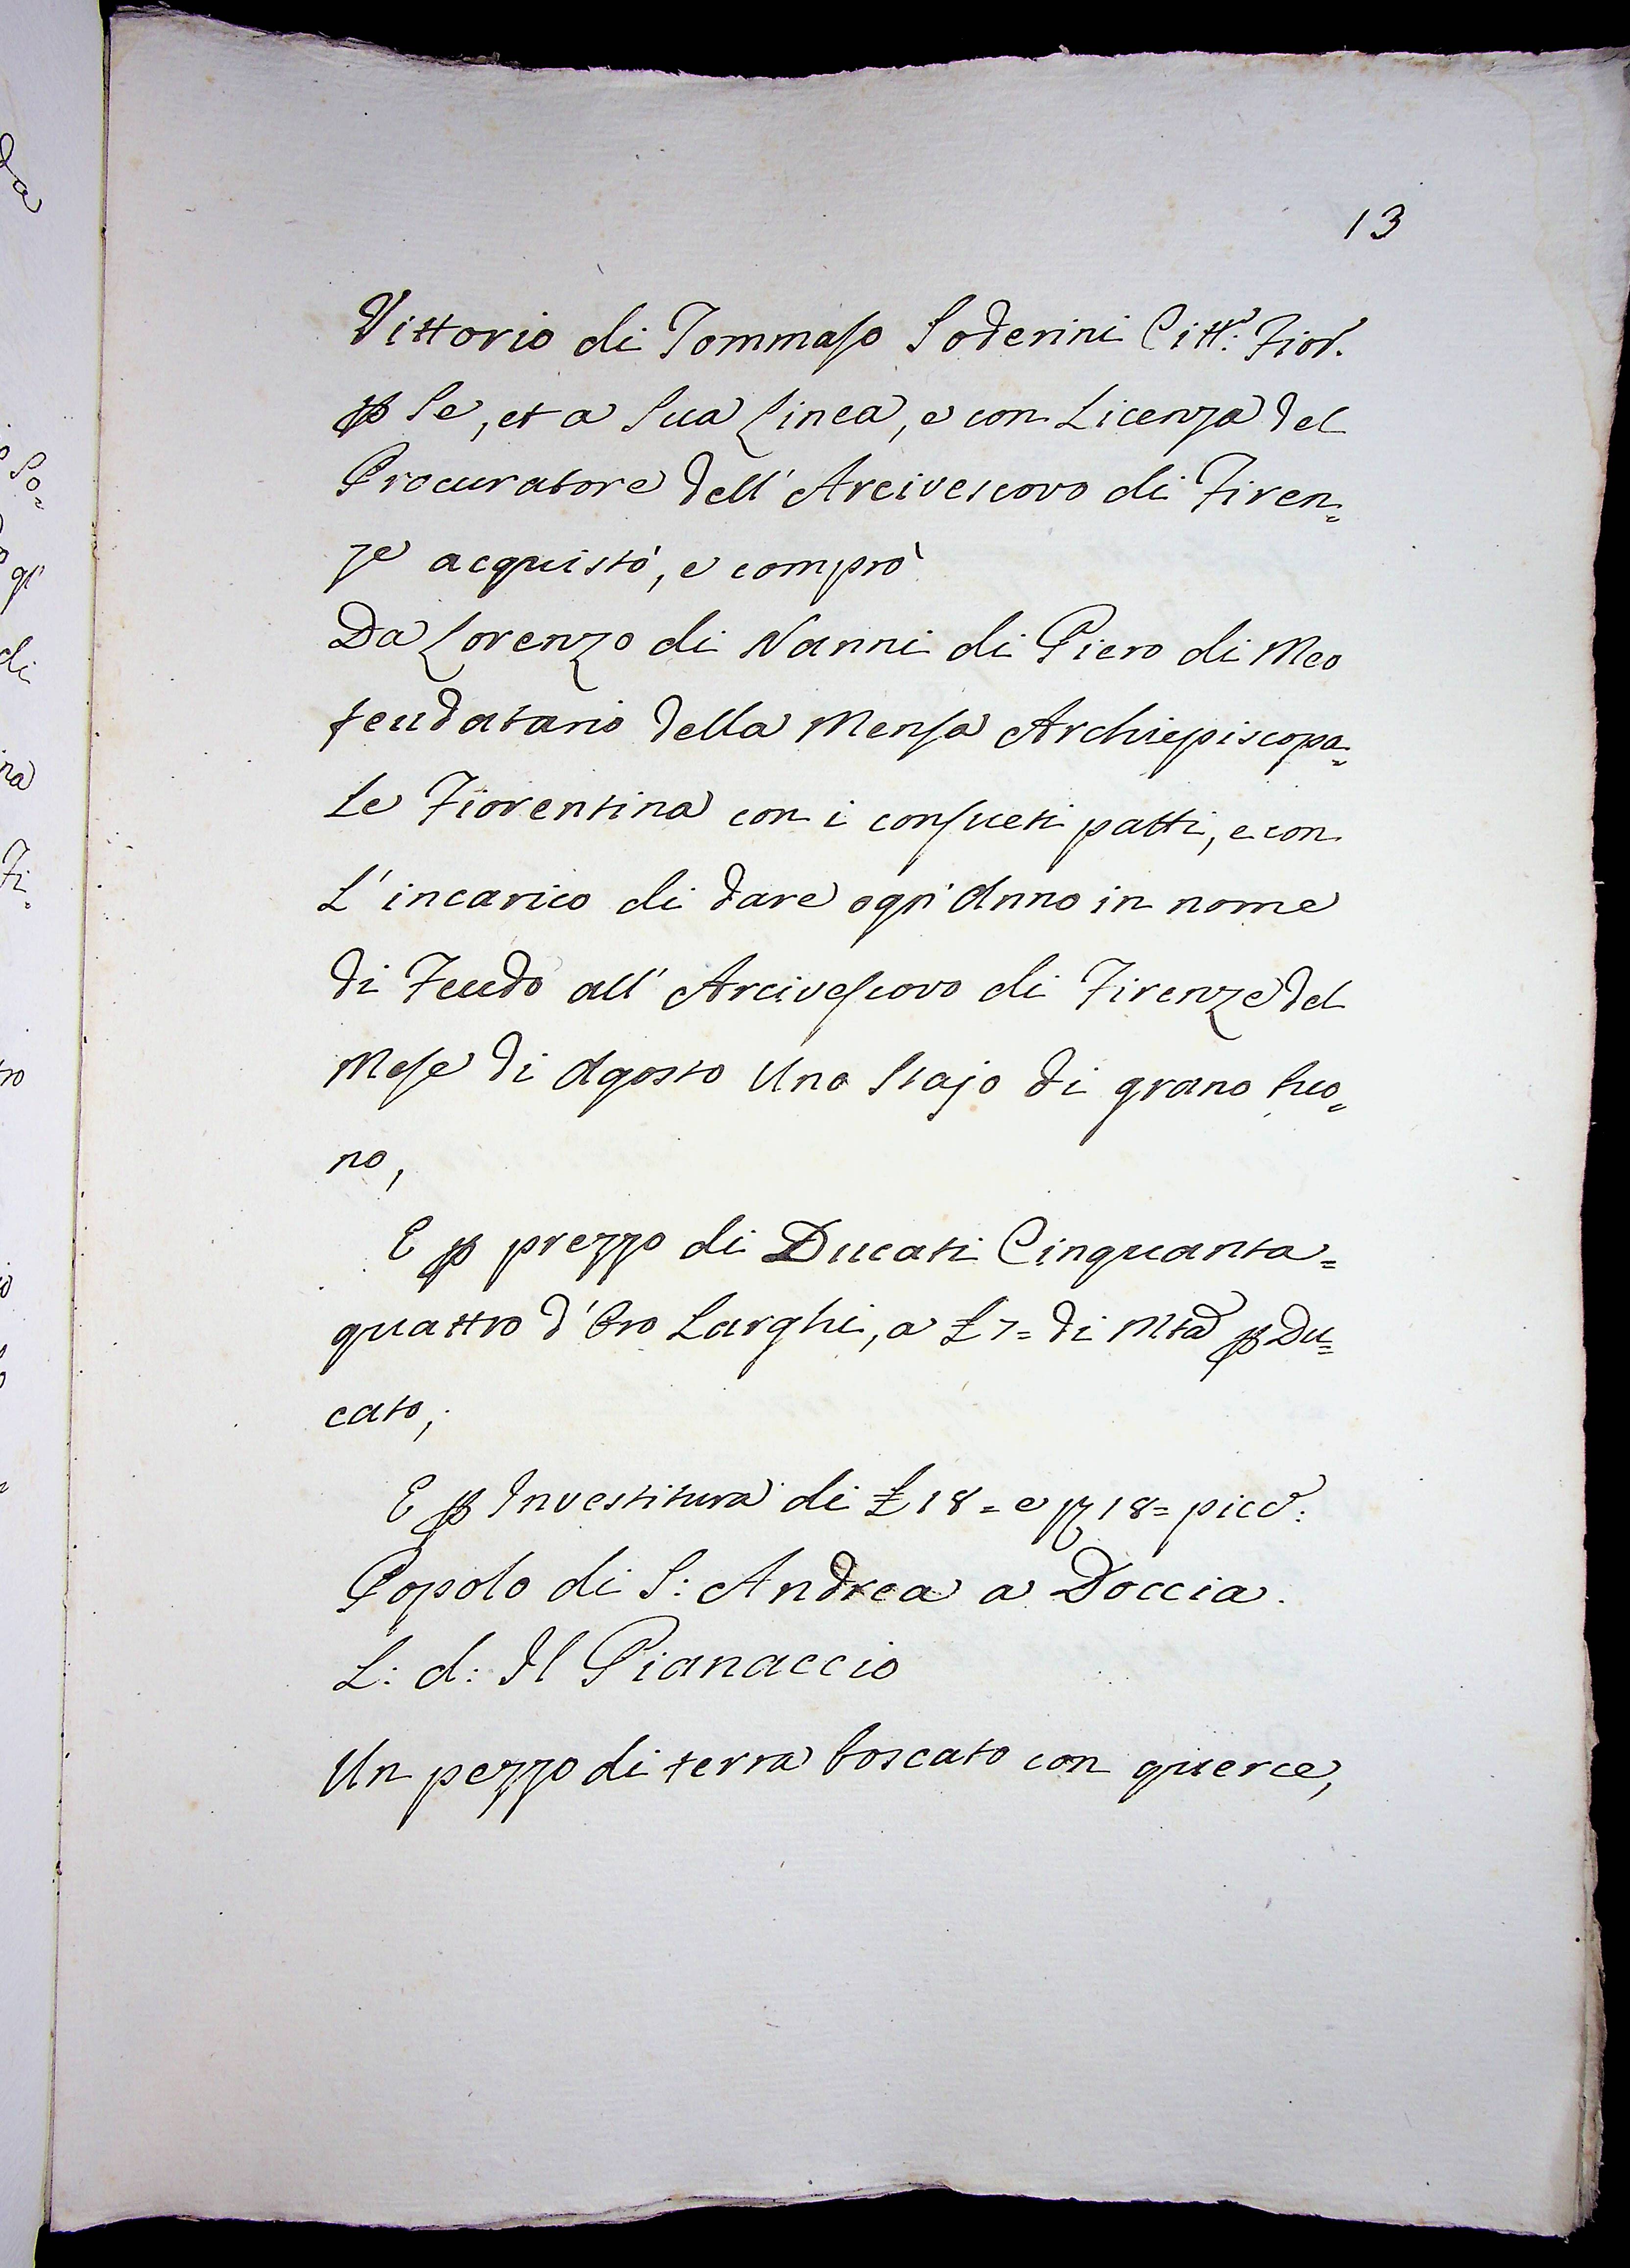 13
Vittorio di Tommaso Soderini Citt.º Fior.º
ꝑ Se, et a Sua Linea, e con Licenza del
Procuratore dell' Arcivescovo di Firen=
ze acquistò, e comprò
Da Lorenzo di Nanni di Piero di Meo
feudatario della Mensa Archiepiscopa=
le Fiorentina con i consueti patti, e con
L'incarico di dare ogn'Anno in nome
di Feudo all' Arcivescovo di Firenze del
Mese di Agosto Uno Stajo di grano buo=
no,
E ꝑ prezzo di Ducati Cinquanta=
quattro d'Oro Larghi, a £ 7= di Mta ꝑ Du=
cato,
E ꝑ Investitura di £ 18 = e 18= picc.º:
Popolo di S: Andrea a Doccia.
L: d: Il Pianaccio
Un pezzo di terra boscato con querce,
So=
qn'
di
na
Fi=